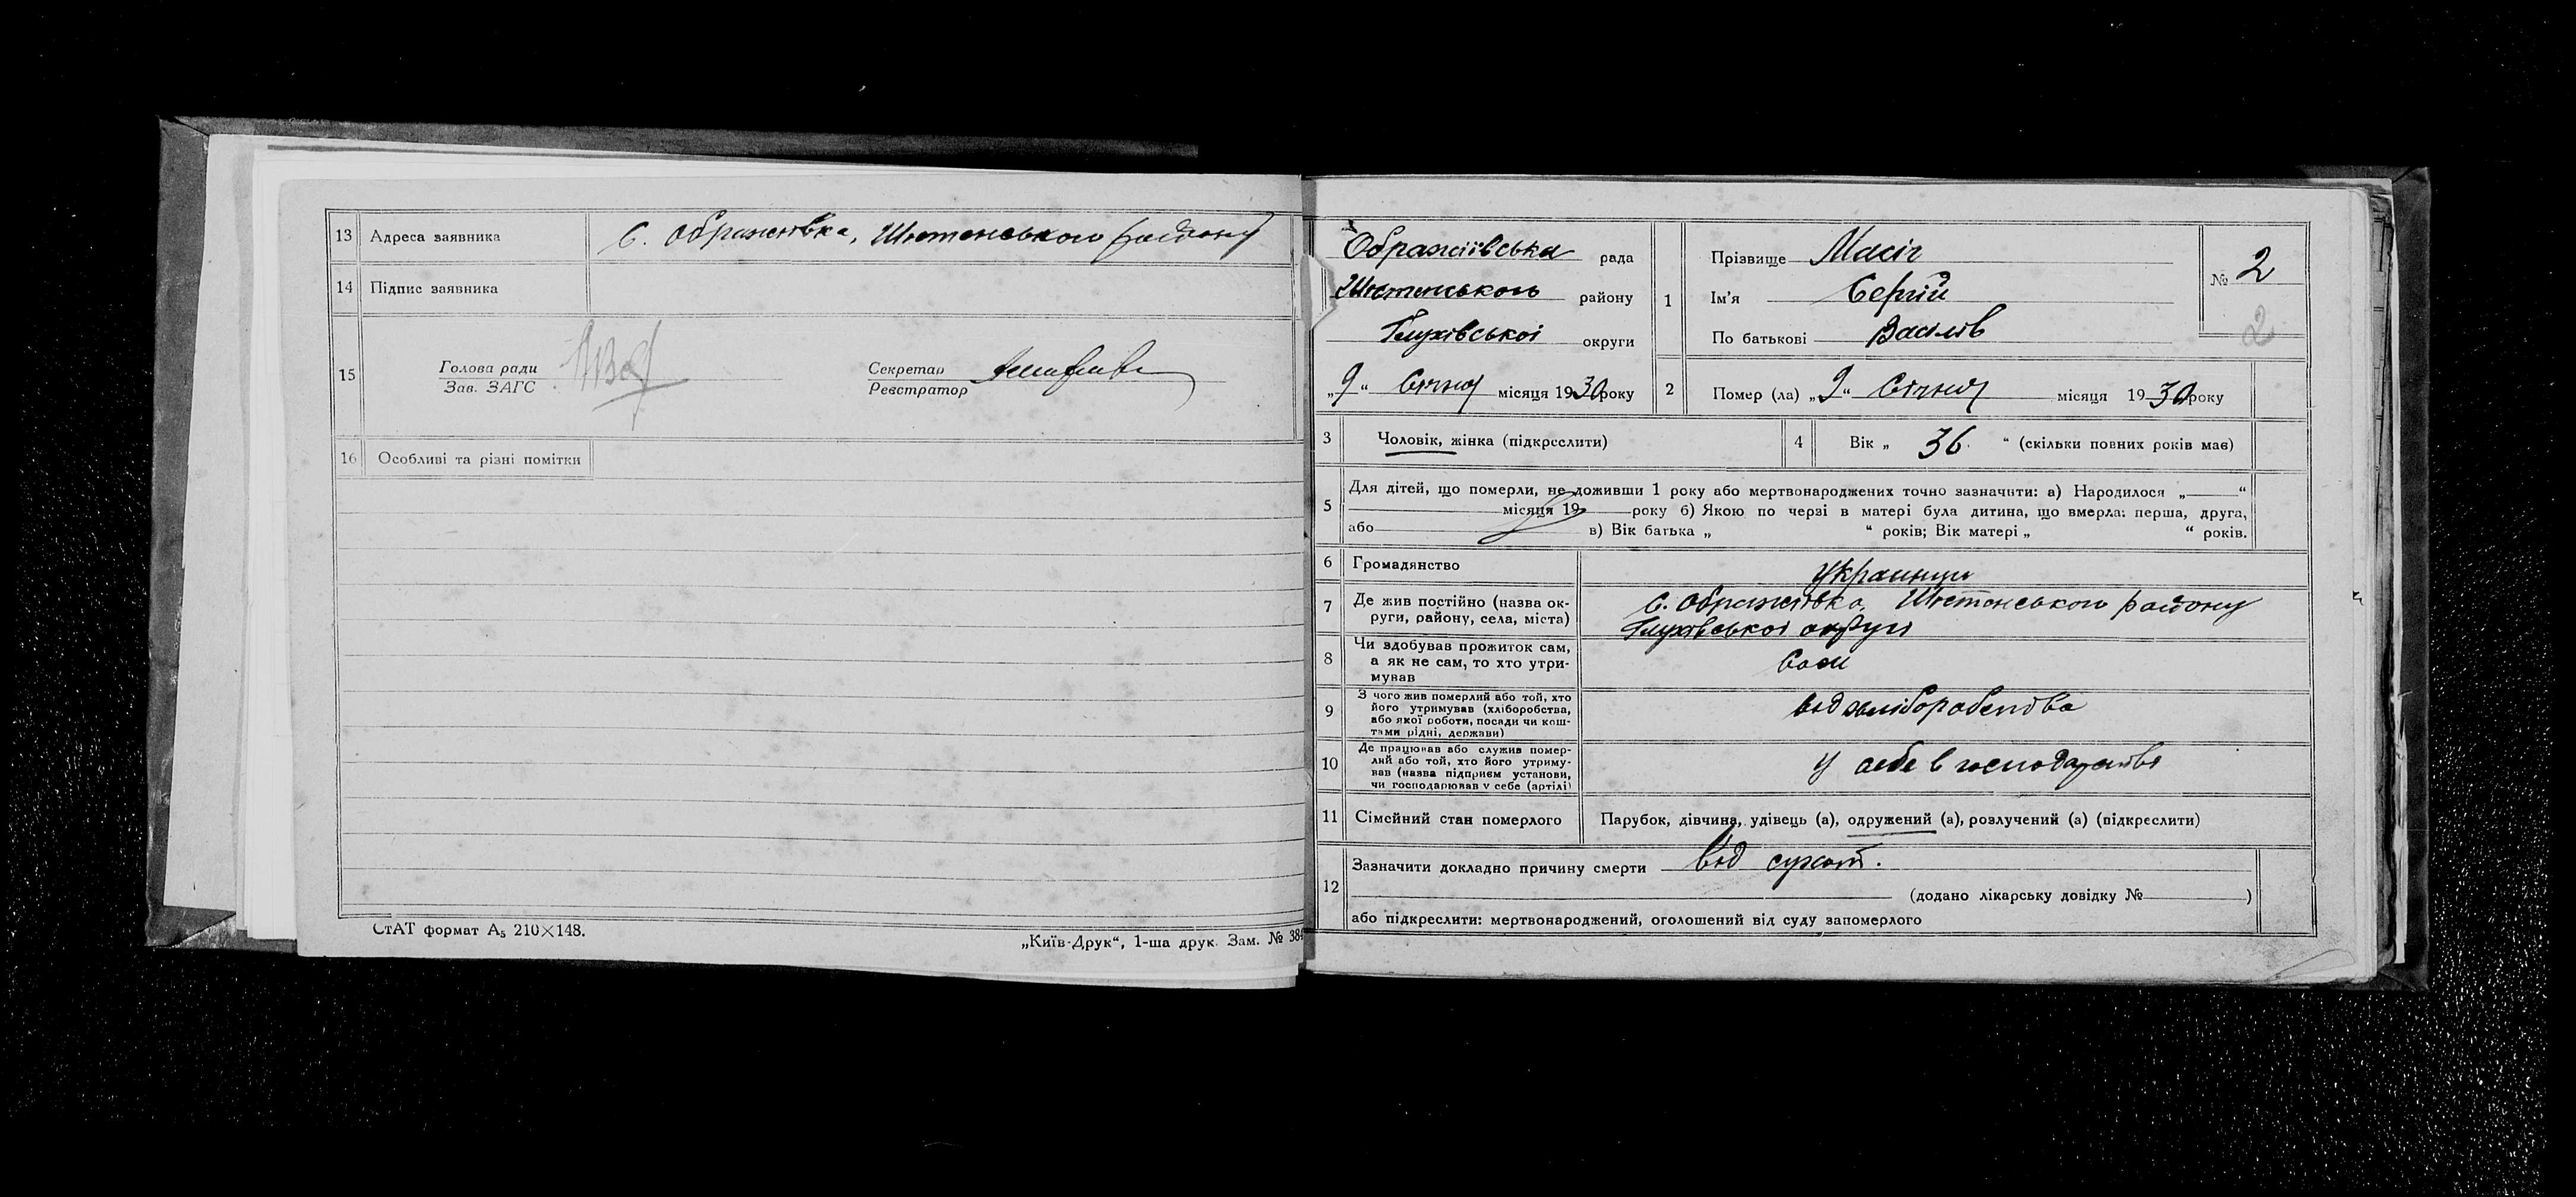 13 Адреса заявника с. Ображіївка, Шостенського району
14 Підпис заявника
15 Голова ради Зав. ЗАГС Секретар Реєстратор
16 Особливі та різні помітки
СтАТ формат А₅ 210×148.
„Київ-Друк“, 1-ша друк. Зам. № 384
Ображіївська рада
Шостенського району
Глухівської округи
„9“ Січня місяця 1930 року
1 Прізвище Масіч
Ім’я Сергій
По батькові Василів
№ 2
2
2 Помер (ла) „9“ Січня місяця 1930 року
3 Чоловік, жінка (підкреслити)
4 Вік „36“ (скільки повних років має)
5 Для дітей, що померли, не доживши 1 року або мертвонароджених точно зазначити: а) Народилося „ “
місяця 19 року б) Якою по черзі в матері була дитина, що вмерла: перша, друга,
або в) Вік батька „ “ років; Вік матері „ “ років.
6 Громадянство Украинци
7 Де жив постійно (назва ок-
руги, району, села, міста)
с. Ображіївка, Шостенського району
Глухівської округи
8 Чи здобував прожиток сам,
а як не сам, то хто утри-
мував
Сам
9 З чого жив померлий або той, хто
його утримував (хліборобства,
або якої роботи, посади чи кош-
тами рідні, держави)
від хліборобства
10 Де працював або служив помер-
лий або той, хто його утриму-
вав (назва підприєм установи,
чи господарював у себе (артілі)
у себе в господарстві
11 Сімейний стан померлого Парубок, дівчина, удівець (а), одружений (а), розлучений (а) (підкреслити)
12 Зазначити докладно причину смерти від сухот.
(додано лікарську довідку № )
або підкреслити: мертвонароджений, оголошений від суду запомерлого